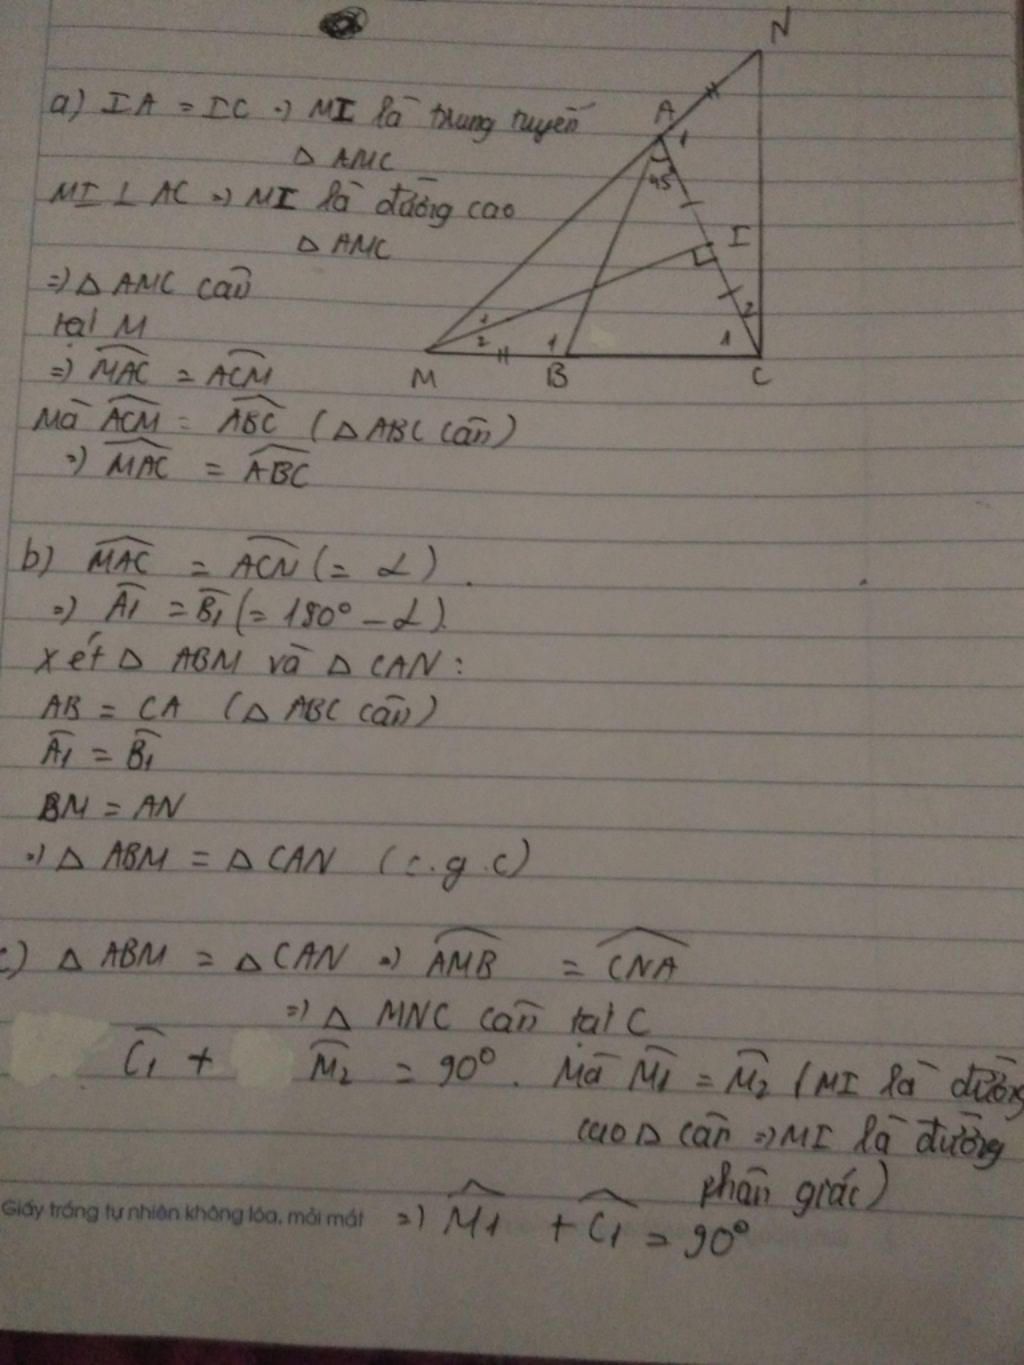 N
a) IA = IC => MI là trung tuyến
Δ AMC
MI ⊥ AC => MI là đường cao
Δ AMC
=> Δ AMC cân
tại M
=> MAC = ACM
Mà ACM = ABC (Δ ABC cân)
=> MAC = ABC
A
1
45
I
1
2
1
1
2
M
B
C
b) MAC = ACN (= α).
=> A1 = B1 (= 180° - α).
Xét Δ ABM và Δ CAN:
AB = CA (Δ ABC cân)
A1 = B1
BM = AN
=> Δ ABM = Δ CAN (c.g.c)
c) Δ ABM = Δ CAN => AMB = CNA
=> Δ MNC cân tại C
C1 + M2 = 90°. Mà M1 = M2 (MI là đường
cao Δ cân => MI là đường
phân giác)
Giấy trắng tự nhiên không lóa, mỏi mắt
=> M1 + C1 = 90°